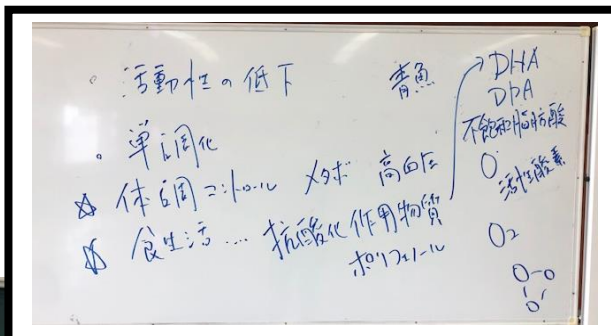 。活動性の低下
青魚
。単調化
☆ 体調コントロール メタボ 高血圧
☆ 食生活…. 抗酸化作用物質
ポリフェノール
DHA
DPA
不飽和脂肪酸
O
活性酸素
O₂
O-O
O